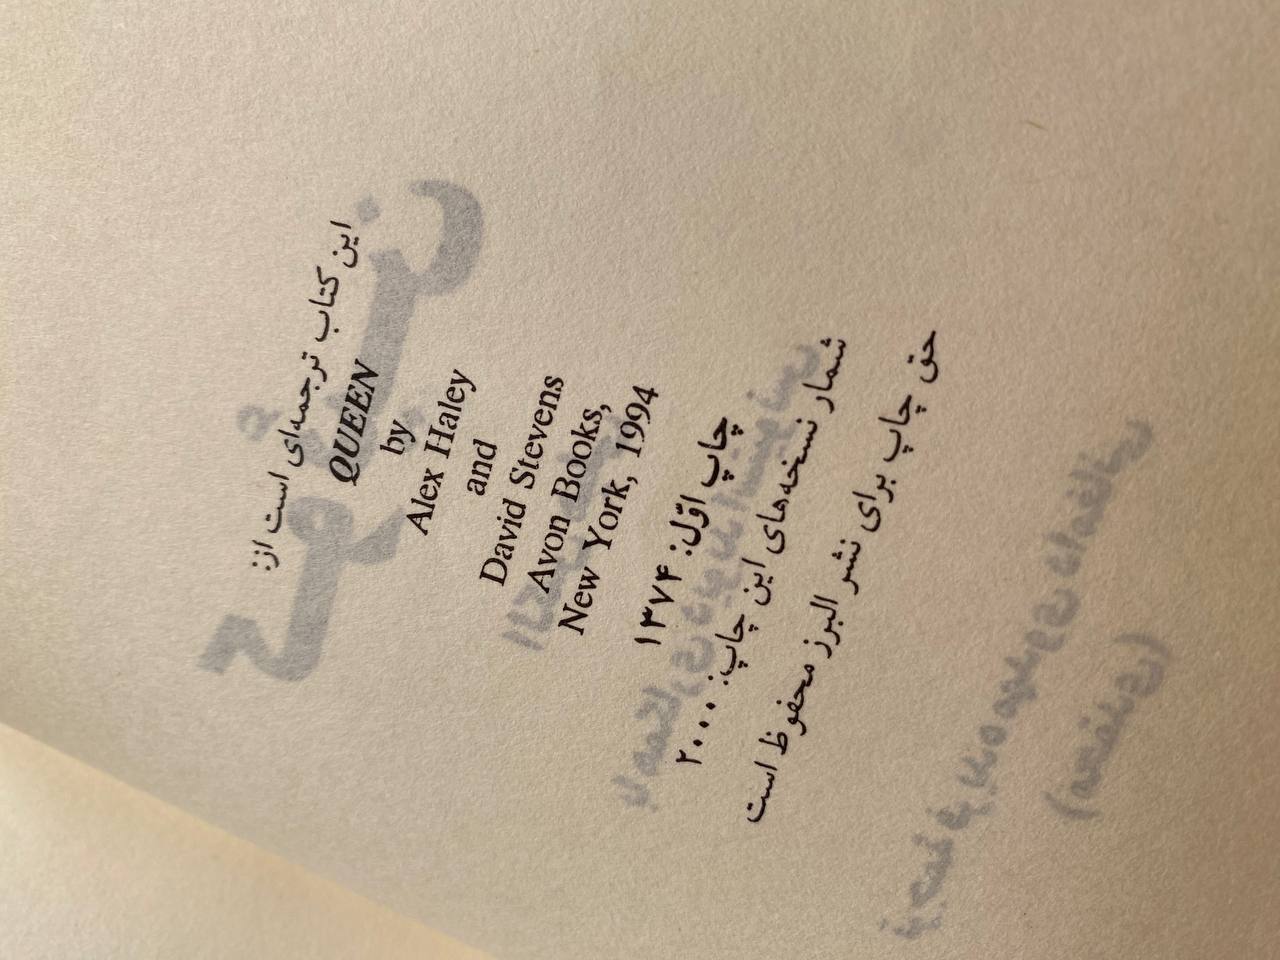 این کتاب ترجمه‌ای است از:
QUEEN
by
Alex Haley
and
David Stevens
Avon Books,
New York, 1994
چاپ اوّل: ۱۳۷۴
شمار نسخه‌های این چاپ: ۲۰۰۰
حق چاپ برای نشر البرز محفوظ است